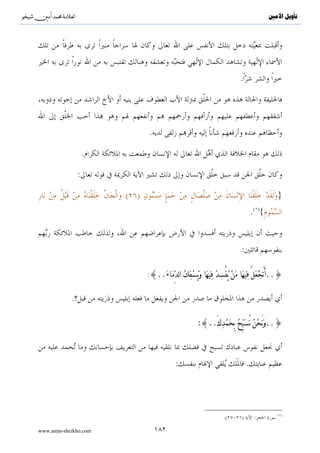 تأويل الأمين
العلامة محمد أمين شيخو
وأقبلت بمعيَّته دخل بتلك الأنفس على الله تعالى وكان لها سراجاً منيراً ترى به طرفاً من تلك
الأسماء الإلهية وتشاهد الكمال الإلهي فتحبّه وتعشقه وهنالك تقتبس به من الله نوراً ترى به الخير
خيراً والشر شرّاً.
فالخليفة والحالة هذه هو من الخلْق بمنزلة الأب العطوف على بنيه أو الأخ الراشد من إخوته وذويه،
أشفقهم وأعطفهم عليهم وأرأفهم وأرحمهم بهم وأنفعهم لهم وهو بهذا أحب الخلْق إلى الله
وأحظاهم عنده وأرفعهم شأناً إليه وأقربهم زلفى لديه.
ذلك هو مقام الخلافة الذي أهَّل الله تعالى له الإنسان وطمعت به الملائكة الكرام.
وكان خلْق الجن قد سبق خلْق الإنسان وإلى ذلك تشير الآية الكريمة في قوله تعالى:
{وَلَقَدْ خَلَقْنَا الْإِنْسَانَ مِنْ صَلْصَالٍ مِنْ حَمَإٍ مَسْنُونٍ (٢٦) وَالْجَانَّ خَلَقْنَاهُ مِنْ قَبْلُ مِنْ نَارِ
السَّمُومِ}(١).
وحيث أن إبليس وذريته أفسدوا في الأرض بإعراضهم عن الله، ولذلك خاطب الملائكة ربَّهم
بنفوسهم قائلين:
﴿ ..أَتَجْعَلُ فِيهَا مَنْ يُفْسِدُ فِيهَا وَيَسْفِكُ الدِّمَاءَ.. ﴾:
أي أيصدر من هذا المخلوق ما صدر من الجن ويفعل ما فعله إبليس وذريته من قبل؟.
﴿ ..وَنَحْنُ نُسَبِّحُ بِحَمْدِكَ.. ﴾:
أي نجعل نفوس عبادك تسبح في فضلك بما نلقيه فيها من التعريف بإحسانك وما تُحمد عليه من
عظيم عنايتك. فالمَلَك يُلقي الإلهام بنفسك:
(١) سورة الحجر: الآية (٢٦-٢٧).
www.amin-sheikho.com
١٨٢